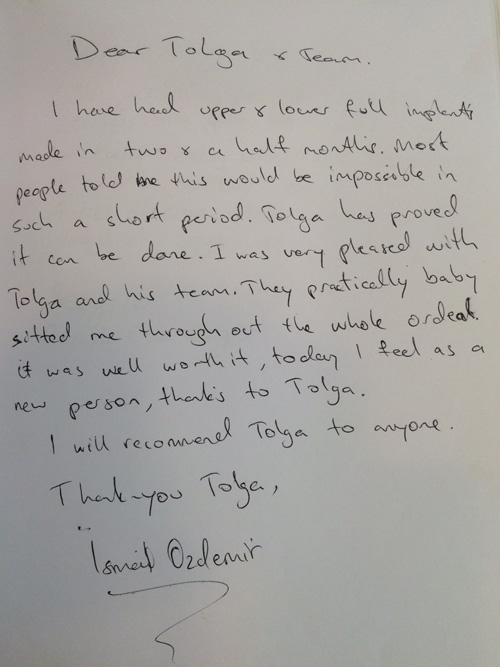 Dear Tolga & Team.
I have had upper & lower full implants
made in two & a half months. Most
people told me this would be impossible in
such a short period. Tolga has proved
it can be done. I was very pleased with
Tolga and his team. They practically baby
sitted me through out the whole ordeal.
it was well worth it, today I feel as a
new person, thanks to Tolga.
I will recommend Tolga to anyone.
Thank-you Tolga,
Ismail Ozdemir